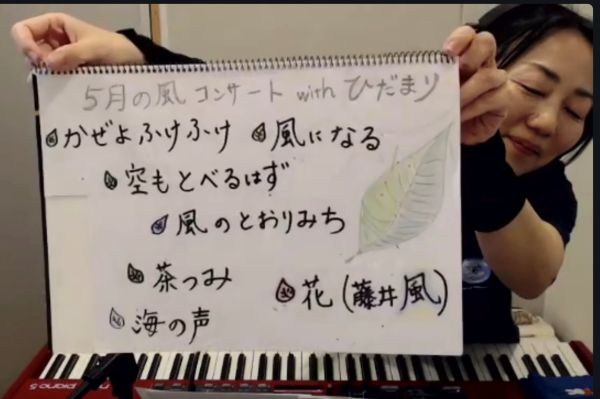 5月の風 コンサート with ひだまり
かぜよ ふけふけ 風になる
空もとべるはず
風のとおりみち
茶つみ
花 (藤井 風)
海の声
piano 5